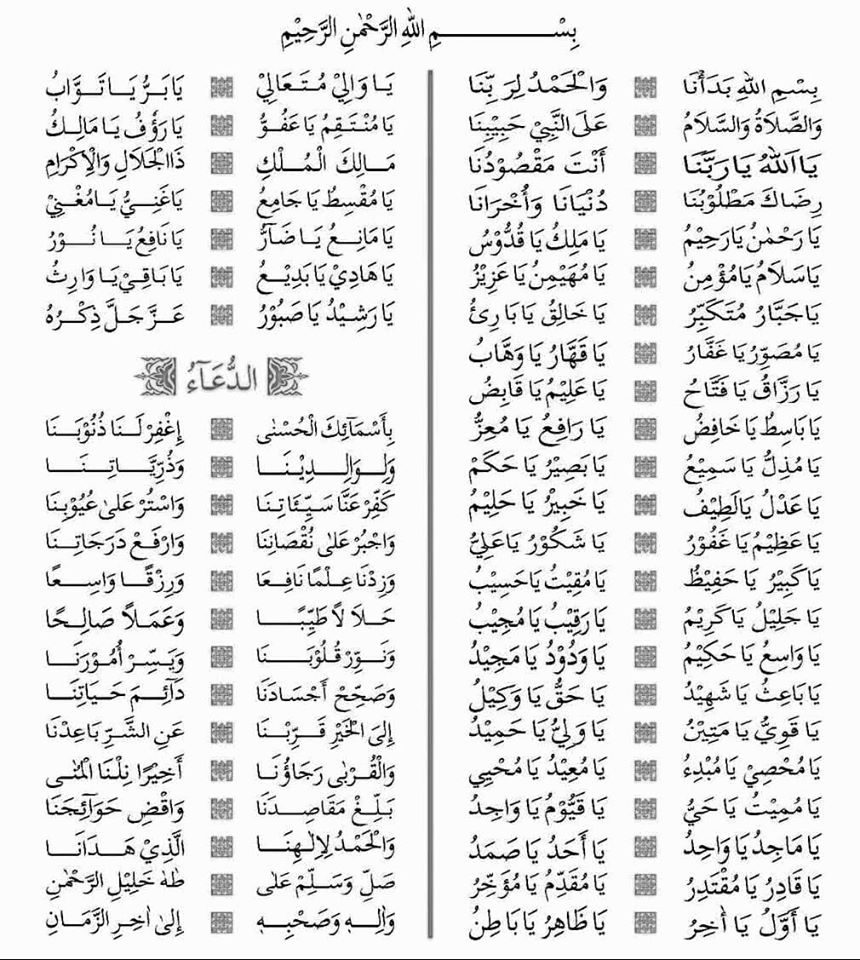 بِسْـــــــــمِ اللهِ الرَّحْمٰنِ الرَّحِيْمِ
بِسْمِ اللهِ بَدَأْنَا وَالْحَمْدُ لِرَبِّنَا
وَالصَّلَاةُ وَالسَّلَامُ عَلَى النَّبِيْ حَبِيْبِنَا
يَا اَللهُ يَا رَبَّنَا أَنْتَ مَقْصُوْدُنَا
رِضَاكَ مَطْلُوْبُنَا دُنْيَانَا وَأُخْرَانَا
يَا رَحْمٰنُ يَارَحِيْمُ يَا مَلِكُ يَا قُدُّوْسُ
يَاسَلَامُ يَامُؤْمِنُ يَا مُهَيْمِنُ يَا عَزِيْزُ
يَاجَبَّارُ مُتَكَبِّرُ يَا خَالِقُ يَا بَارِئُ
يَا مُصَوِّرُ يَا غَفَّارُ يَا قَهَّارُ يَا وَهَّابُ
يَا رَزَّاقُ يَا فَتَّاحُ يَا عَلِيْمُ يَا قَابِضُ
يَا بَاسِطُ يَا خَافِضُ يَا رَافِعُ يَا مُعِزُّ
يَا مُذِلُّ يَا سَمِيْعُ يَا بَصِيْرُ يَا حَكَمْ
يَا عَدْلُ يَالَطِيْفُ يَا خَبِيْرُ يَا حَلِيْمُ
يَا عَظِيْمُ يَا غَفُوْرُ يَا شَكُوْرُ يَاعَلِيُّ
يَا كَبِيْرُ يَا حَفِيْظُ يَا مُقِيْتُ يَاحَسِيْبُ
يَا جَلِيْلُ يَاكَرِيْمُ يَا رَقِيْبُ يَا مُجِيْبُ
يَا وَاسِعُ يَا حَكِيْمُ يَا وَدُوْدُ يَا مَجِيْدُ
يَا بَاعِثُ يَا شَهِيْدُ يَا حَقُّ يَا وَكِيْلُ
يَا قَوِيُّ يَا مَتِيْنُ يَا وَلِيُّ يَا حَمِيْدُ
يَا مُحْصِيْ يَا مُبْدِءُ يَا مُعِيْدُ يَا مُحْيِي
يَا مُمِيْتُ يَا حَيُّ يَا قَيُّوْمُ يَا وَاجِدُ
يَا مَاجِدُ يَا وَاحِدُ يَا أَحَدُ يَا صَمَدُ
يَا قَادِرُ يَا مُقْتَدِرُ يَا مُقَدِّمُ يَا مُؤَخِّرُ
يَا أَوَّلُ يَا أٰخِرُ يَا ظَاهِرُ يَا بَاطِنُ
يَا وَالِيْ مُتَعَالِيْ يَابَرُّ يَا تَوَّابُ
يَا مُنْتَقِمُ يَا عَفُوُّ يَا رَؤُفُ يَا مَالِكُ
مَالِكَ الْمُلْكِ ذَاالْجَلَالِ وَالْاِكْرَامِ
يَا مُقْسِطُ يَا جَامِعُ يَاغَنِيُّ يَامُغْنِيْ
يَا مَانِعُ يَا ضَآرُّ يَا نَافِعُ يَا نُوْرُ
يَا هَادِيْ يَا بَدِيْعُ يَا بَاقِيْ يَا وَارِثُ
يَا رَشِيْدُ يَا صَبُوْرُ عَزَّ جَلَّ ذِكْرُهُ
الدُّعَآءُ
بِأَسْمَآئِكَ الْحُسْنٰى إِغْفِرْ لَنَا ذُنُوْبَنَا
وَلِوَالِدِيْنَا وَذُرِّيَّاتِنَا
كَفِّرْ عَنَّا سَيِّئَاتِنَا وَاسْتُرْ عَلىٰ عُيُوْبِنَا
وَاجْبُرْ عَلىٰ نُقْصَانِنَا وَارْفَعْ دَرَجَاتِنَا
وَزِدْنَا عِلْمًا نَافِعَا وَرِزْقًا وَاسِعًا
حَلَا لًا طَيِّبًا وَعَمَلًا صَالِحًا
وَنَوِّرْ قُلُوْبَنَا وَيَسِّرْ أُمُوْرَنَا
وَصَحِّحْ أَجْسَادَنَا دَآئِمَ حَيَاتِنَا
إِلَى الْخَيْرِ قَرِّبْنَا عَنِ الشَّرِّ بَاعِدْنَا
وَالْقُرْبٰى رَجَاؤُنَا أَخِيْرًا نِلْنَا الْمُنٰى
بَلِّغْ مَقَاصِدَنَا وَاقْضِ حَوَآئِجَنَا
وَالْحَمْدُ لِاِلٰهِنَا الَّذِيْ هَدَانَا
صَلِّ وَسَلِّمْ عَلىٰ طٰهٰ خَلِيْلِ الرَّحْمٰنِ
وَاٰلِهٖ وَصَحْبِهٖ إِلىٰ اٰخِرِ الزَّمَانِ